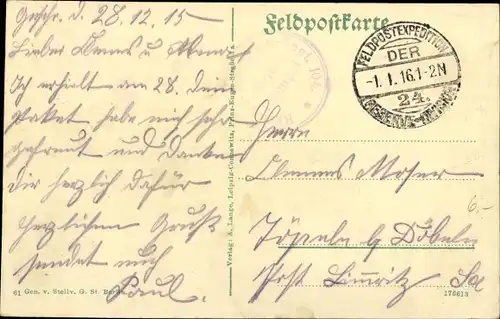 Geschr. d. 28.12.15
Lieber Clemens u
Ich erhielt am 28. Dein
Paket habe mich sehr
gefreut und Danke
Dir herzlich dafür
Herzlichen Gruß
sendet euch
Paul.
61 Gen. v. Stellv. G. St. Berlin
Verlag: A. Lange, Leipzig-Connewitz, Prinz-Eugen-Straße
Feldpostkarte
FELDPOSTEXPEDITION
DER
-1. 1. 16. 1-2N
24.
RESERVE-DIVISION
104
Herrn
Clemens Moser
Töpeln b Döbeln
Post Limmritz Sa
6.-
176613